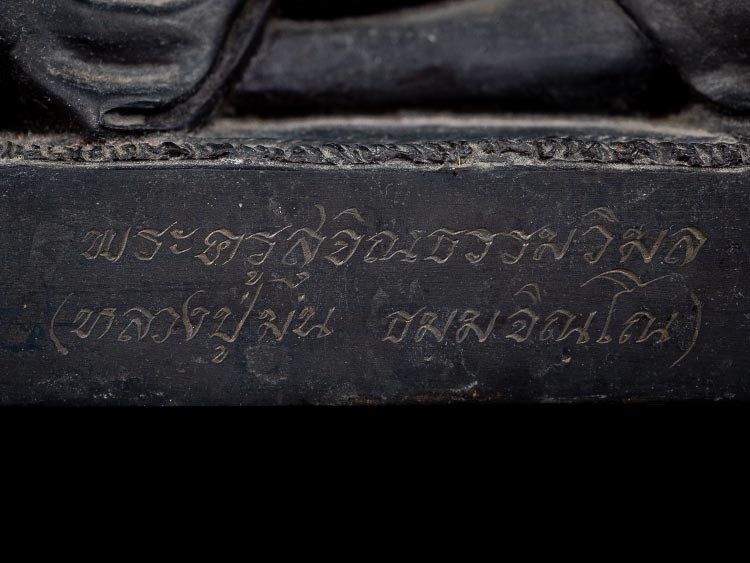 พระครูสุจิณธรรมวิมล
(หลวงปู่มั่น ธมฺมจิณฺโณ)